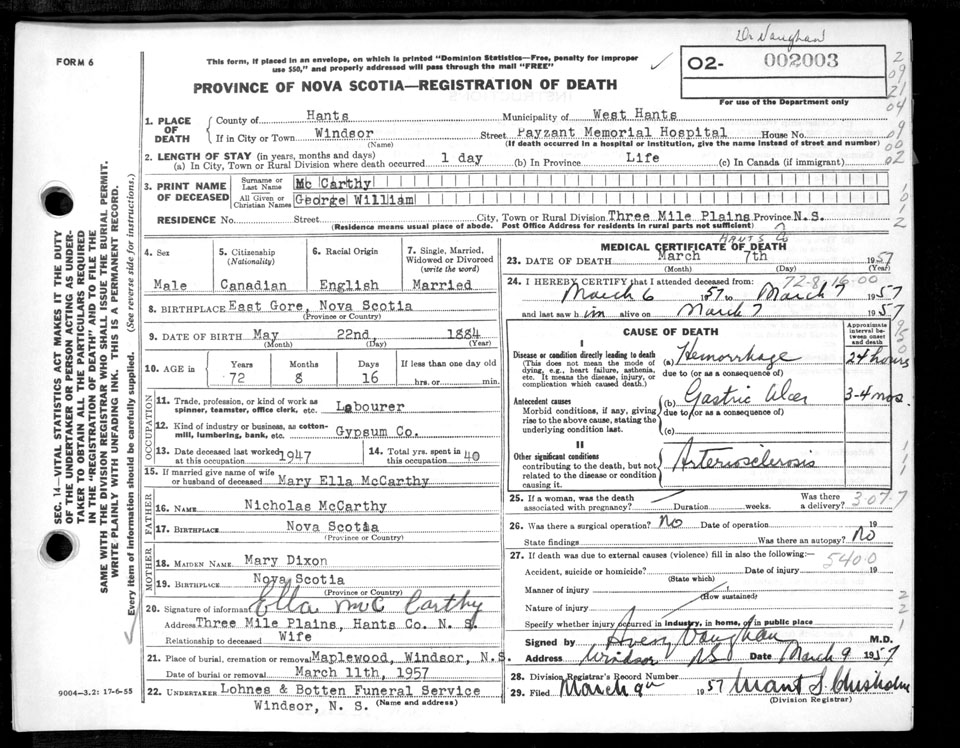 Dr Vaughan
FORM 6
This form, if placed in an envelope, on which is printed "Dominion Statistics—Free, penalty for improper
use $50," and properly addressed will pass through the mail "FREE"
02- 002003
PROVINCE OF NOVA SCOTIA—REGISTRATION OF DEATH
For use of the Department only
1. PLACE OF DEATH
County of Hants Municipality of West Hants
If in City or Town Windsor Street Payzant Memorial Hospital House No.
(Name) (If death occurred in a hospital or institution, give the name instead of street and number)
2. LENGTH OF STAY (in years, months and days)
(a) In City, Town or Rural Division where death occurred 1 day (b) In Province Life (c) In Canada (if immigrant)
3. PRINT NAME OF DECEASED
Surname or Last Name Mc Carthy
All Given or Christian Names George William
RESIDENCE No. Street City, Town or Rural Division Three Mile Plains Province N.S.
(Residence means usual place of abode. Post Office Address for residents in rural parts not sufficient)
HANTS Co
4. Sex Male
5. Citizenship (Nationality) Canadian
6. Racial Origin English
7. Single, Married, Widowed or Divorced (write the word) Married
8. BIRTHPLACE East Gore, Nova Scotia
(Province or Country)
9. DATE OF BIRTH May 22nd, 1884
(Month) (Day) (Year)
10. AGE in Years 72 Months 8 Days 16 If less than one day old hrs. or min.
OCCUPATION
11. Trade, profession, or kind of work as spinner, teamster, office clerk, etc. Labourer
12. Kind of industry or business, as cotton-mill, lumbering, bank, etc. Gypsum Co.
13. Date deceased last worked at this occupation 1947
14. Total yrs. spent in this occupation 40
15. If married give name of wife or husband of deceased Mary Ella McCarthy
FATHER
16. NAME Nicholas McCarthy
17. BIRTHPLACE Nova Scotia
(Province or Country)
MOTHER
18. MAIDEN NAME Mary Dixon
19. BIRTHPLACE Nova Scotia
(Province or Country)
20. Signature of informant Ella McCarthy
Address Three Mile Plains, Hants Co. N. S.
Relationship to deceased Wife
21. Place of burial, cremation or removal Maplewood, Windsor, N.S.
Date of burial or removal March 11th, 1957
22. UNDERTAKER Lohnes & Botten Funeral Service
Windsor, N. S. (Name and address)
MEDICAL CERTIFICATE OF DEATH
23. DATE OF DEATH March 7th 1957
(Month) (Day) (Year)
72-8-16-00
24. I HEREBY CERTIFY that I attended deceased from:
March 6 1957 to March 7 1957
and last saw him alive on March 7 1957
CAUSE OF DEATH
Approximate interval between onset and death
I
Disease or condition directly leading to death
(This does not mean the mode of dying, e.g., heart failure, asthenia, etc. It means the disease, injury, or complication which caused death.)
(a) Hemorrhage 24 hours
due to (or as a consequence of)
Antecedent causes
Morbid conditions, if any, giving rise to the above cause, stating the underlying condition last.
(b) Gastric Ulcer 3-4 mos.
due to (or as a consequence of)
(c)
II
Other significant conditions
contributing to the death, but not related to the disease or condition causing it.
Arteriosclerosis
25. If a woman, was the death associated with pregnancy? Duration weeks. Was there a delivery?
307.7
26. Was there a surgical operation? No Date of operation 19
State findings Was there an autopsy? No
27. If death was due to external causes (violence) fill in also the following:
5400
Accident, suicide or homicide? Date of injury 19
(State which)
Manner of injury
(How sustained)
Nature of injury
Specify whether injury occurred in industry, in home, or in public place
Signed by Avery Vaughan M.D.
Address Windsor NS Date March 9 1957
28. Division Registrar's Record Number
29. Filed March 9th 1957 Chisholm
(Division Registrar)
SEC. 14—VITAL STATISTICS ACT MAKES IT THE DUTY
OF THE UNDERTAKER OR PERSON ACTING AS UNDER-
TAKER TO OBTAIN ALL THE PARTICULARS REQUIRED
IN THE "REGISTRATION OF DEATH" AND TO FILE THE
SAME WITH THE DIVISION REGISTRAR WHO SHALL ISSUE THE BURIAL PERMIT.
WRITE PLAINLY WITH UNFADING INK. THIS IS A PERMANENT RECORD.
Every item of information should be carefully supplied. (See reverse side for instructions.)
9004-3.2: 17-6-55